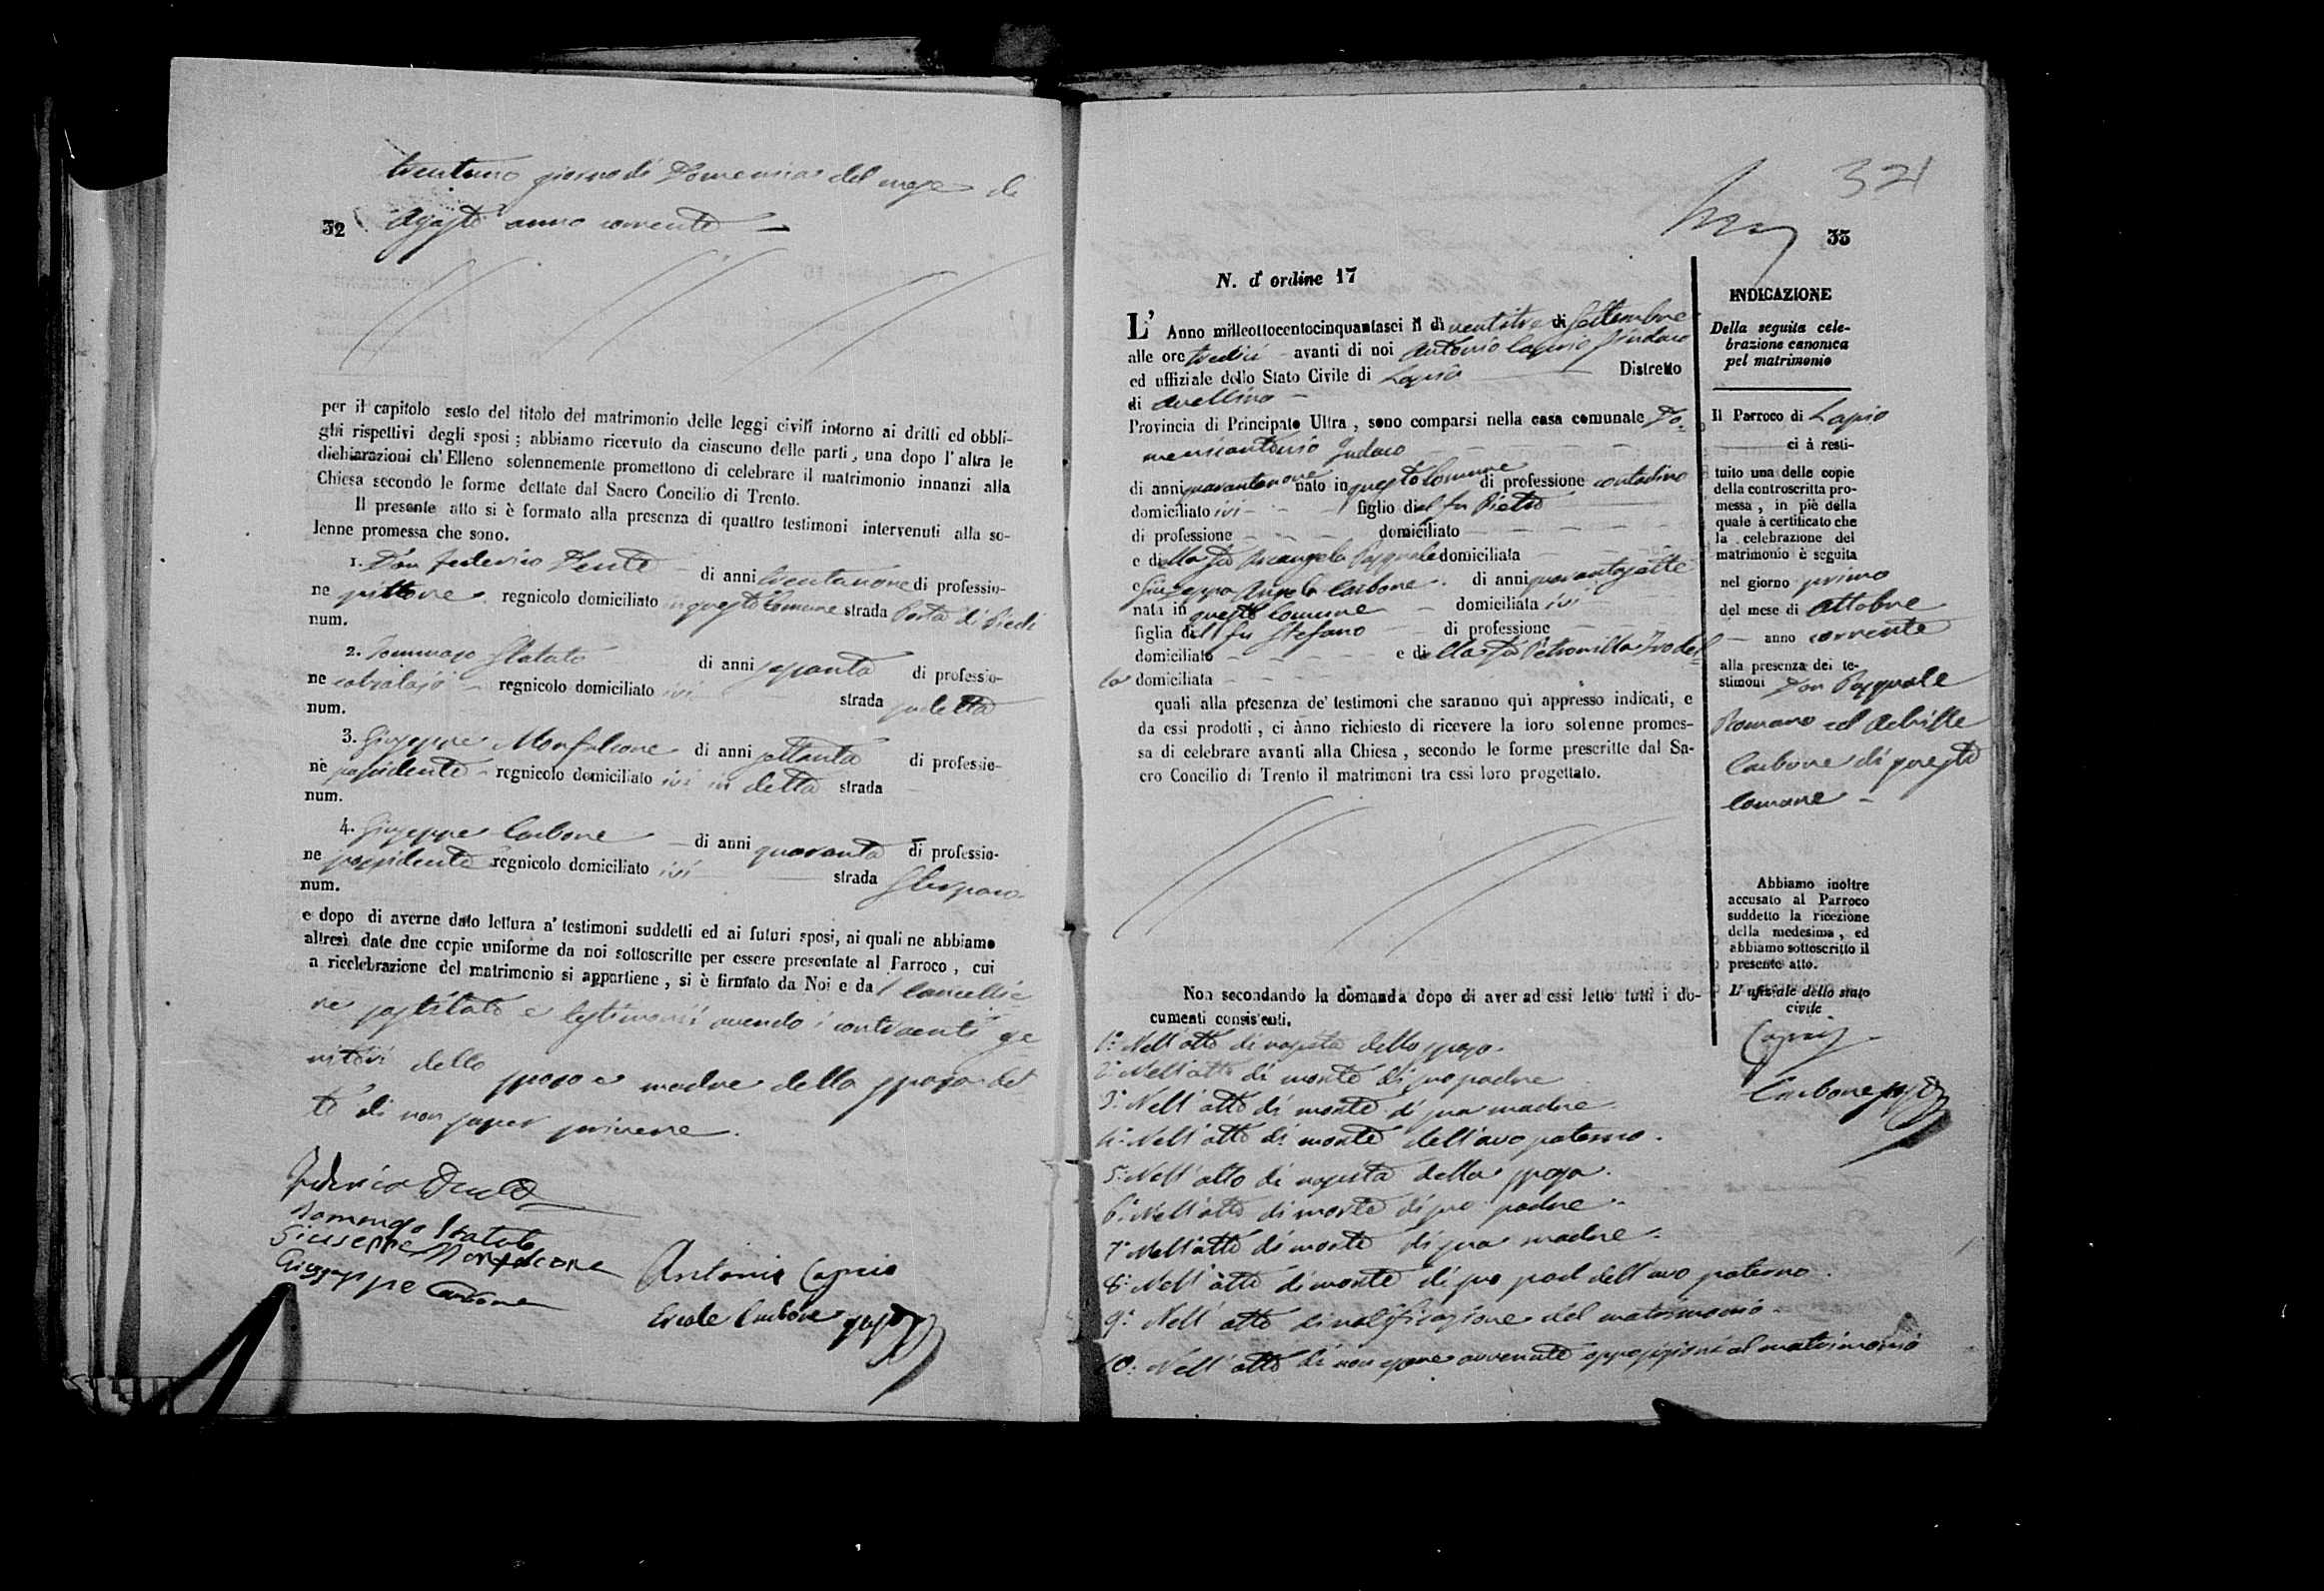 trentuno giorno di Domenica del mese di
32 Agosto anno corrente
per il capitolo sesto del titolo del matrimonio delle leggi civili intorno ai dritti ed obbli-
ghi rispettivi degli sposi ; abbiamo ricevuto da ciascuno delle parti , una dopo l'altra le
dichiarazioni ch'Elleno solennemente promettono di celebrare il matrimonio innanzi alla
Chiesa secondo le forme dettate dal Sacro Concilio di Trento.
Il presente atto si è formato alla presenza di quattro testimoni intervenuti alla so-
lenne promessa che sono.
1. Don Federico di anni trentanove di professio-
ne pittore regnicolo domiciliato in questo Comune strada Porta di
num.
2. Tommaso Statuto di anni sessanta di professio-
ne regnicolo domiciliato ivi strada
num.
3. Giuseppe Monfalcone di anni settanta di professio-
ne possidente regnicolo domiciliato ivi in detta strada
num.
4. Giuseppe Carbone di anni quaranta di professio-
ne possidente regnicolo domiciliato ivi strada
num.
e dopo di averne dato lettura a' testimoni suddetti ed ai futuri sposi, ai quali ne abbiamo
altresì date due copie uniforme da noi sottoscritte per essere presentate al Parroco , cui
a ricelebrazione del matrimonio si appartiene , si è firmato da Noi e dal Cancellie
re sostituto e testimonii avendo i contraenti ge
nitori dello sposo e madre della sposa det
to di non saper scrivere.
Federico
Tommaso Statuto
Giuseppe Monfalcone
Giuseppe Carbone
Antonio Caprio
Ercole Carbone
321
33
N. d' ordine 17
L' Anno milleottocentocinquantasei il dì ventitre di Settembre
alle ore tredici avanti di noi Antonio Caprio Sindaco
ed uffiziale dello Stato Civile di Lapio Distretto
di Avellino
Provincia di Principato Ultra , sono comparsi nella casa comunale Do-
menicantonio Judaco
di anni quarantanove nato in questo Comune di professione contadino
domiciliato ivi figlio del fu Pietro
di professione domiciliato
e della fu Arcangela Pasquale domiciliata
e Giuseppa Angela Carbone di anni quarantasette
nata in questo Comune domiciliata ivi
figlia del fu Stefano di professione
domiciliato e della fu Petronilla
domiciliata
quali alla presenza de' testimoni che saranno quì appresso indicati, e
da essi prodotti , ci ànno richiesto di ricevere la loro solenne promes-
sa di celebrare avanti alla Chiesa , secondo le forme prescritte dal Sa-
cro Concilio di Trento il matrimoni tra essi loro progettato.
Non secondando la domanda dopo di aver ad essi letto tutti i do-
cumenti consistenti.
1.° Nell'atto di nascita dello sposo.
2.° Nell'atto di morte di suo padre
3.° Nell'atto di morte di sua madre.
4.° Nell'atto di morte dell'avo paterno.
5.° Nell'atto di nascita della sposa.
6.° Nell'atto di morte di suo padre.
7.° Nell'atto di morte di sua madre.
8.° Nell'atto di morte di suo pad dell'avo paterno.
9.° Nell'atto di notificazione del matrimonio.
10.° Nell'atto di non essere avvenute opposizioni al matrimonio
INDICAZIONE
Della seguita cele-
brazione canonica
pel matrimonio
Il Parroco di Lapio
ci à resti-
tuito una delle copie
della controscritta pro-
messa , in piè della
quale à certificato che
la celebrazione del
matrimonio è seguita
nel giorno primo
del mese di Ottobre
anno corrente
alla presenza dei te-
stimoni Don Pasquale
Romano ed Achille
Carbone di questo
Comune
Abbiamo inoltre
accusato al Parroco
suddetto la ricezione
della medesima , ed
abbiamo sottoscritto il
presente atto.
L' ufiziale dello stato
civile
Caprio
Carbone